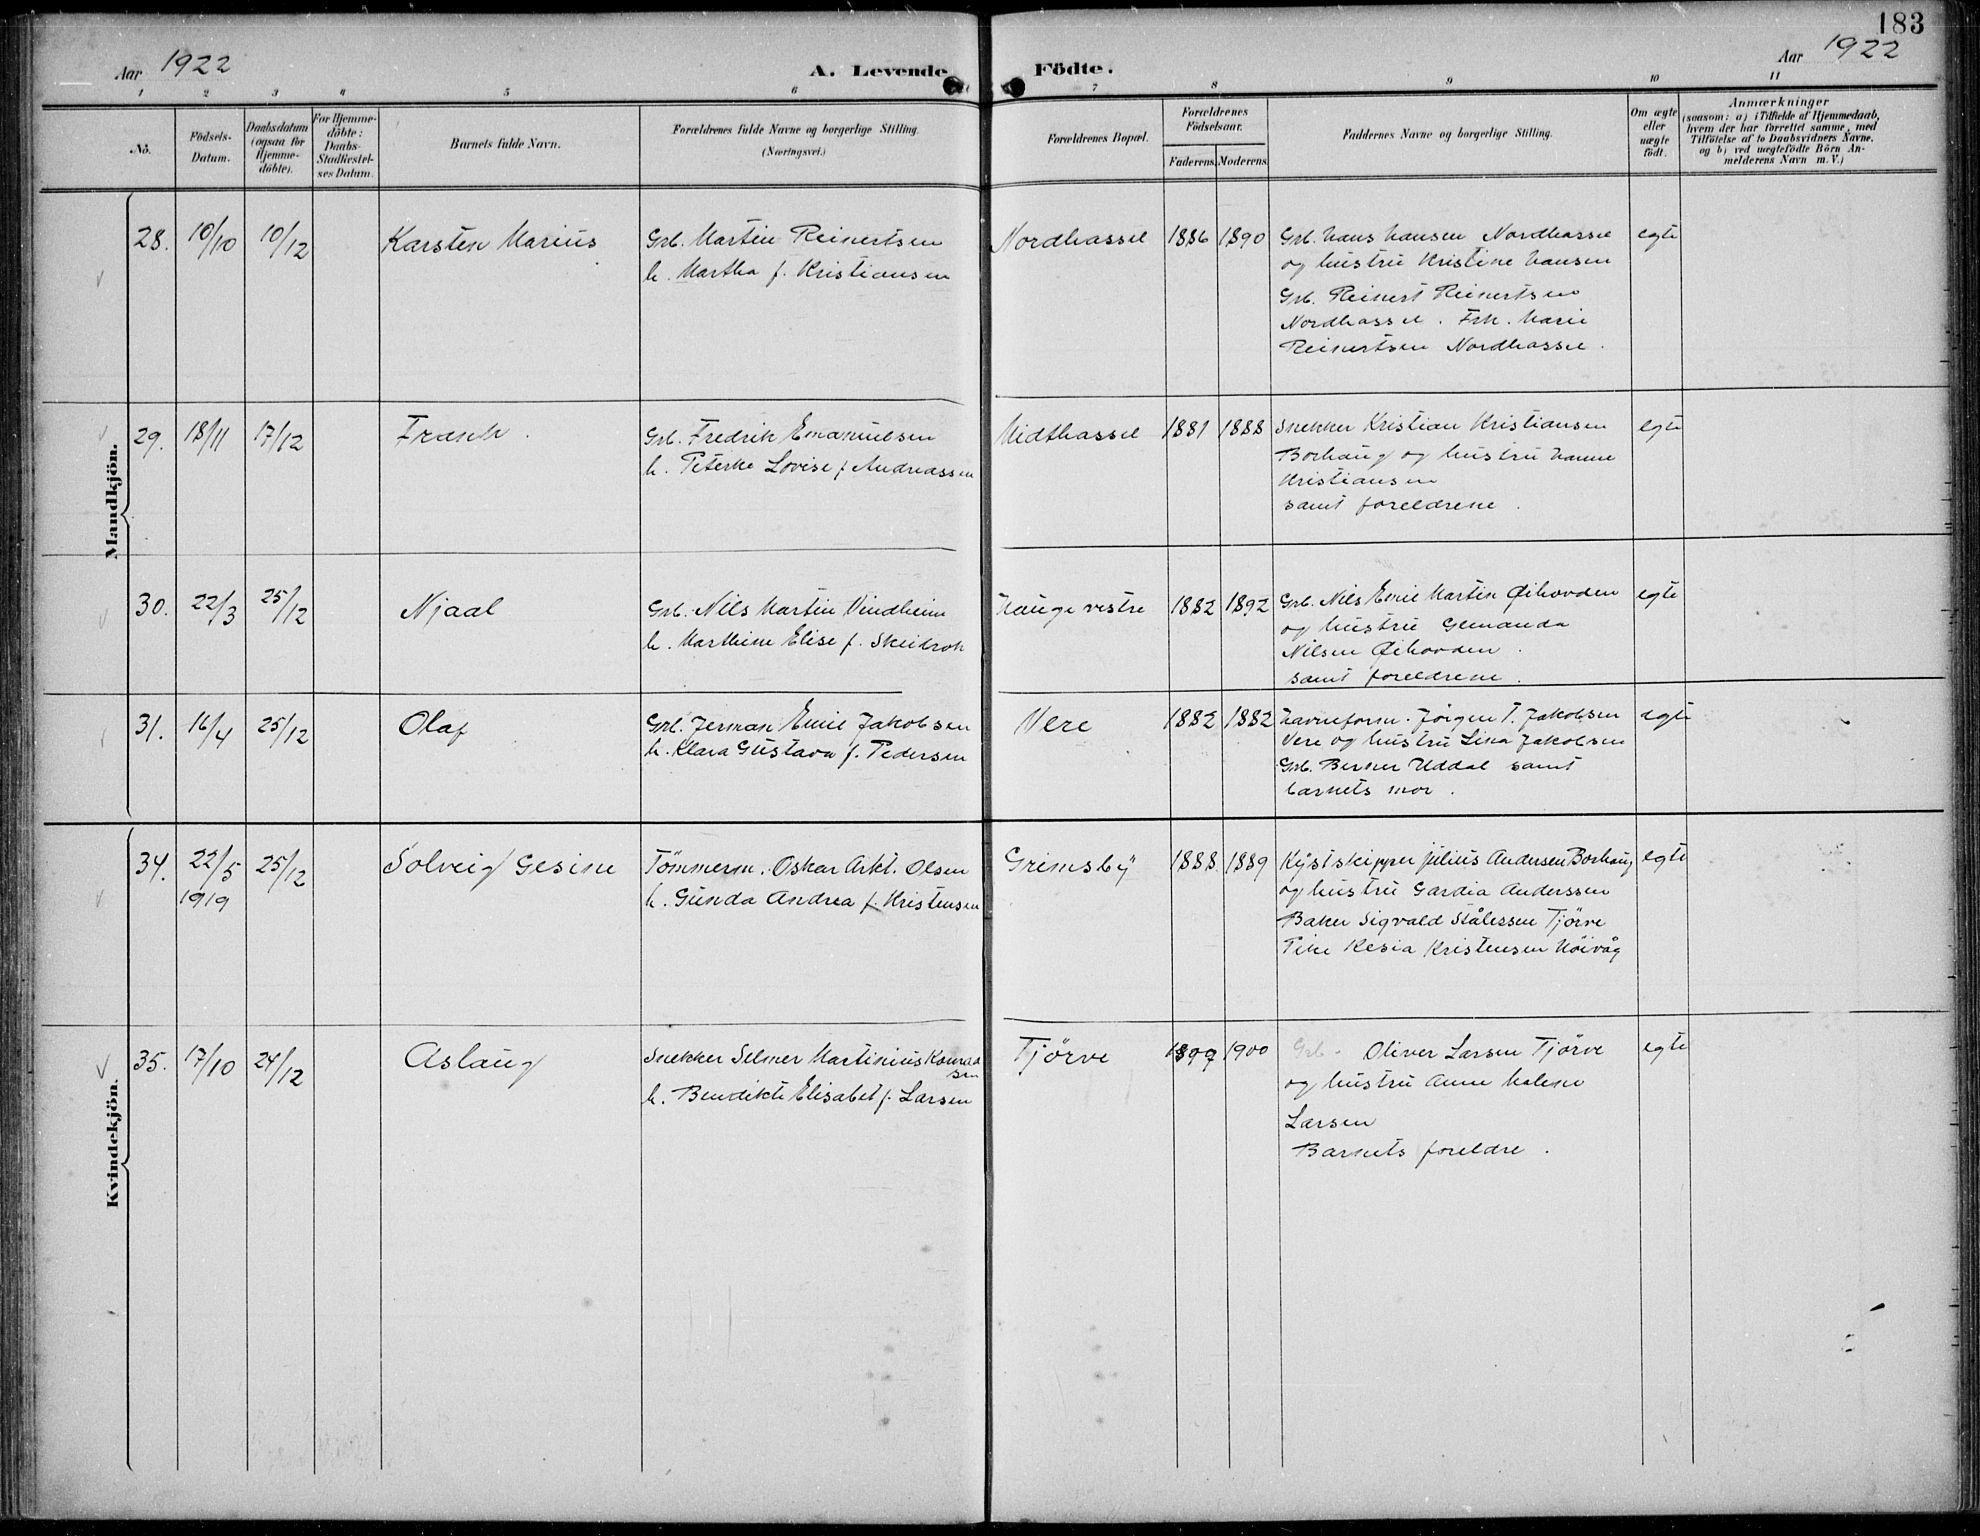 183
Aar 1922 A. Levende Födte. Aar 1922
1 2 3 4 5 6 7 8 9 10 11
No.
Födsels-
Datum.
Daabsdatum
(ogsaa for
Hjemme-
döbte).
For Hjemme-
döbte:
Daabs-
Stadfæstel-
ses Datum.
Barnets fulde Navn.
Forældrenes fulde Navne og borgerlige Stilling.
(Næringsvei.)
Forældrenes Bopæl.
Forældrenes
Födselsaar.
Faderens. Moderens.
Faddernes Navne og borgerlige Stilling.
Om ægte
eller
uægte
födt.
Anmærkninger
(saasom: a) i Tilfælde af Hjemmedaab,
hvem der har forrettet samme, med
Tilföielse af to Daabsvidners Navne,
og b) ved uægtefödte Börn An-
melderens Navn m. V.)
Mandkjön.
28. 10/10 10/12 Karsten Marius
Grb. Martin Reinertsen
h. Martha f. Kristiansen
Nordhassel 1886 1890
Grb. Hans Hansen Nordhassel
og hustru Kristine Hansen
Grb. Reinert Reinertsen
Nordhassel. Frk. Marie
Reinertsen Nordhassel.
egte
29. 18/11 17/12 Frank.
Grb. Fredrik Emanuelsen
h. Peterke Lovise f. Andreassen
Midthassel 1881 1888
Snekker Kristian Kristiansen
Borhaug og hustru Hanne
Kristiansen
samt foreldrene.
egte
30. 22/3 25/12 Njaal
Grb. Nils Martin Vindheim
h. Marthine Elise f. Skeidrok
Hauge vestre 1882 1892
Grb. Nils Emil Martin Øihovden
og hustru Gemanda
Nilsen Øihovden.
samt foreldrene.
egte
31. 16/4 25/12 Olaf
Grb. Jerman Emil Jakobsen
h. Klara Gustava f. Pedersen
Vere 1882 1882
Havneform. Jørgen T. Jakobsen
Vere og hustru Lina Jakobsen
Grb. Berner Uddal samt
barnets mor.
egte
Kvindekjön.
34. 22/5 25/12 Solveig Gesine
1919
Tömmerm. Oskar Arkt. Olsen
h. Gunda Andrea f. Kristensen
Grimsby 1888 1889
Kystskipper Julius Andersen Borhaug
og hustru Gardia Anderssen
Baker Sigvald Stålessen Tjørve
Pike Kesia Kristensen Höivåg
egte
35. 17/10 24/12 Aslaug
Snekker Selmer Martinius Konrad
sen
h. Bendikte Elisabet f. Larsen
Tjørve 1899 1900
Grb. Oliver Larsen Tjørve
og hustru Anne Malene
Larsen
Barnets foreldre.
egte